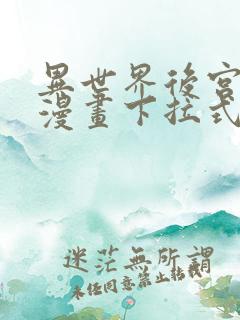 異世界後宮
漫畫下拉式
迷茫無所謂
未任同意禁止轉載